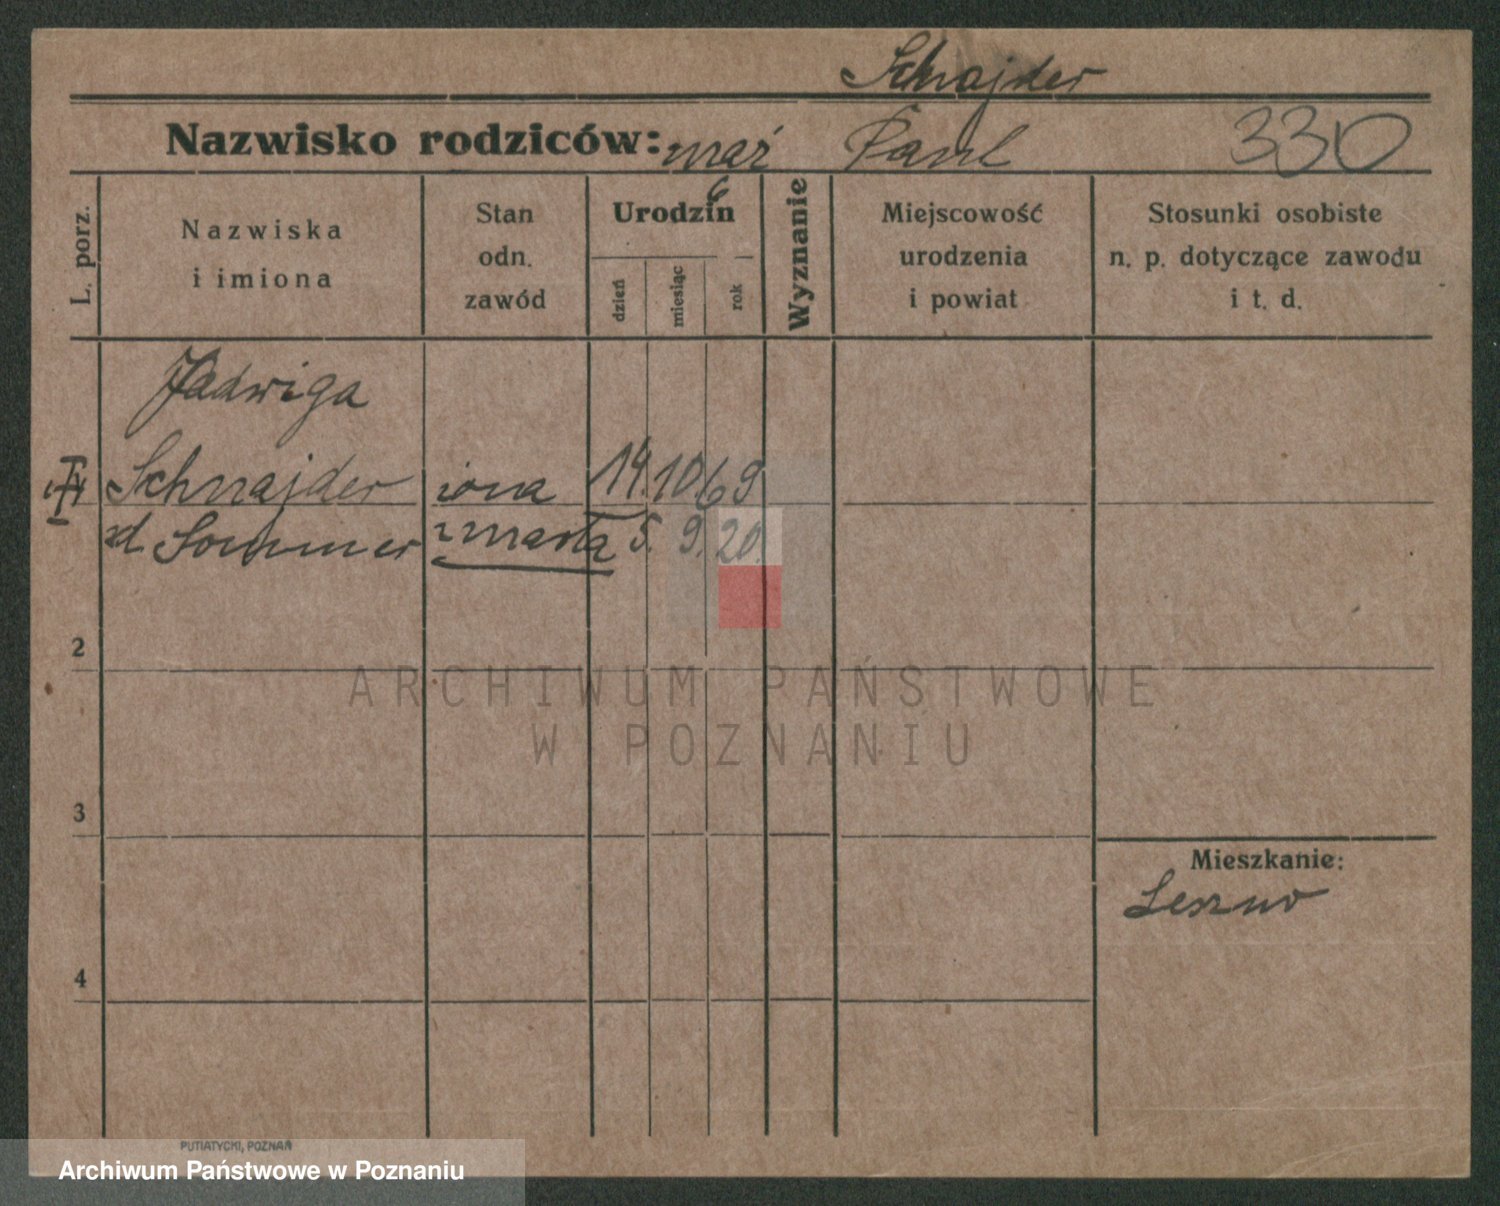 Schnajder
Nazwisko rodziców: mąż Paul 330
L. porz.
Nazwiska
i imiona
Stan
odn.
zawód
Urodzin
dzień
miesiąc
rok
Wyznanie
Miejscowość
urodzenia
i powiat
Stosunki osobiste
n. p. dotyczące zawodu
i t. d.
Jadwiga
Schnajder żona 14. 10. 69
zd. Sommer zmarła 5. 9. 20.
2
ARCHIWUM PAŃSTWOWE
W POZNANIU
3
Mieszkanie:
Leszno
4
PUTIATYCKI, POZNAŃ
Archiwum Państwowe w Poznaniu